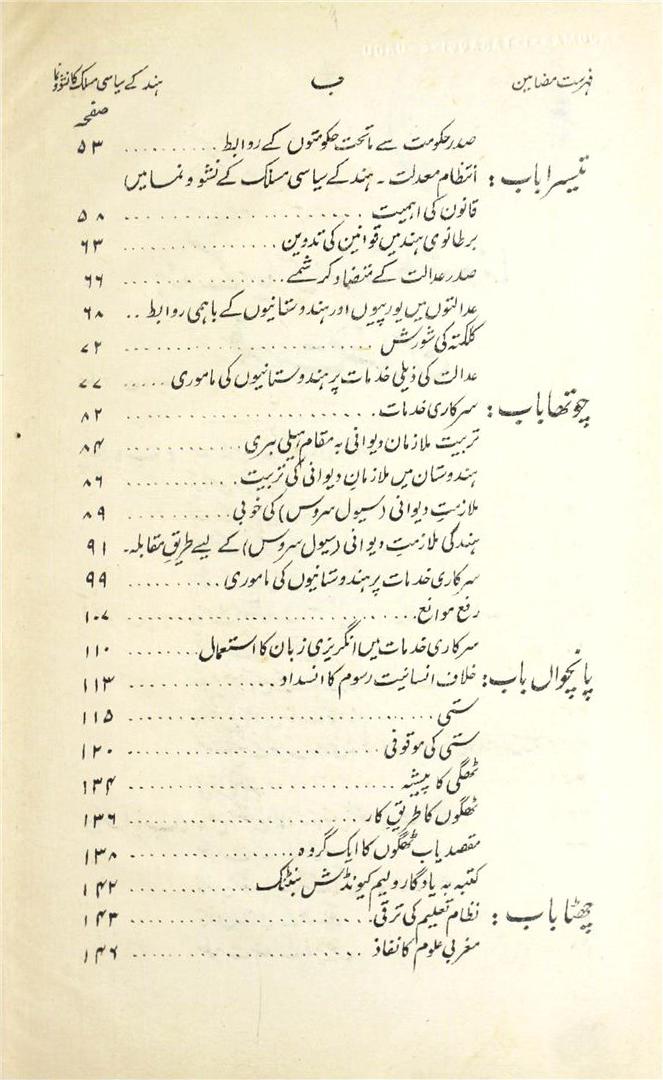 فہرست مضامین ب ہند کے سیاسی مسلک کا نشو و نما
صفحہ
صدر حکومت سے ماتحت حکومتوں کے روابط .......... ۵۳
تیسرا باب : انتظام معدلت ۔ ہند کے سیاسی مسلک کے نشو و نما میں
قانون کی اہمیت .................. ۵۸
برطانوی ہند میں قوانین کی تدوین ............ ۶۳
صدر عدالت کے متضاد کرشمے ............ ۶۶
عدالتوں میں یورپیوں اور ہندوستانیوں کے باہمی روابط .. ۶۸
کلکتہ کی شورش .................. ۷۲
عدالت کی ذیلی خدمات پر ہندوستانیوں کی ماموری ..... ۷۷
چوتھا باب : سرکاری خدمات .................. ۸۲
تربیت ملازمان دیوانی بہ مقام ہیلی بری ............ ۸۴
ہندوستان میں ملازمانِ دیوانی کی تربیت ............ ۸۶
ملازمتِ دیوانی (سیول سروس) کی خوبی .......... ۸۹
ہند کی ملازمتِ دیوانی (سیول سروس) کے لیے طریقِ مقابلہ . ۹۱
سرکاری خدمات پر ہندوستانیوں کی ماموری .......... ۹۹
رفع موانع .................. ۱۰۷
سرکاری خدمات میں انگریزی زبان کا استعمال ........ ۱۱۰
پانچواں باب : خلاف انسانیت رسوم کا انسداد ............ ۱۱۳
ستی .................. ۱۱۵
ستی کی موقوفی .................. ۱۲۰
ٹھگی کا پیشہ .................. ۱۳۴
ٹھگوں کا طریقِ کار .................. ۱۳۶
مقصد یاب ٹھگوں کا ایک گروہ ............ ۱۳۸
کتبہ بہ یادگار ولیم کیونڈش بنٹنک ............ ۱۴۲
چھٹا باب : نظام تعلیم کی ترقی .................. ۱۴۳
مغربی علوم کا نفاذ .................. ۱۴۶